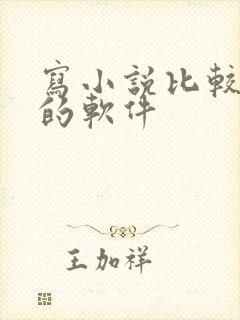 寫小說比較
的軟件
王加祥